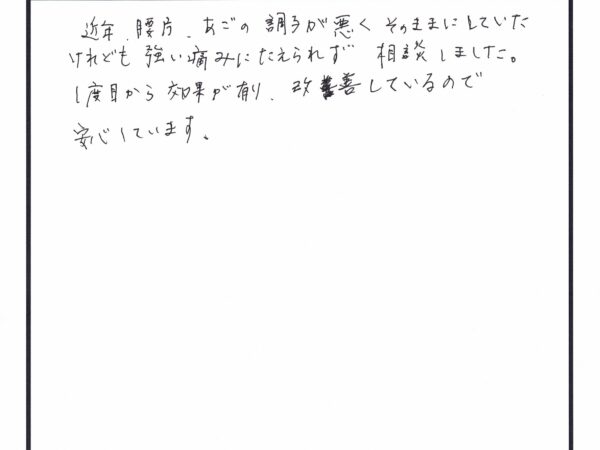 近年、腰片、あごの調子が悪くそのままにしていた
けれども強い痛みにたえられず 相談しました。
1度目から効果が有り、改善しているので
安心しています。